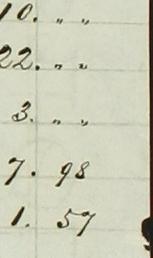 10. " "
22. " "
3. " "
7. 98
1. 57